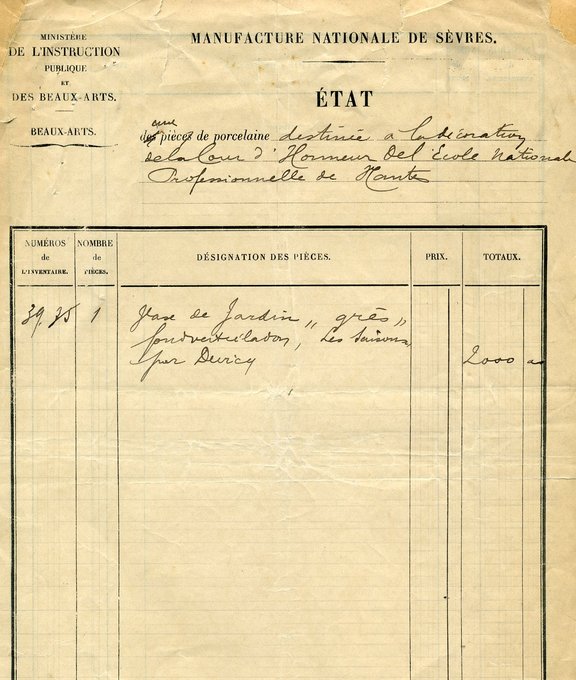 MINISTÈRE
DE L'INSTRUCTION
PUBLIQUE
ET
DES BEAUX-ARTS.
BEAUX-ARTS.
MANUFACTURE NATIONALE DE SÈVRES.
ÉTAT
une
des pièces de porcelaine destinée a la décoration
de la Cour d'Honneur del Ecole Nationale
Professionnelle de Nantes
NUMÉROS
de
L'INVENTAIRE.
NOMBRE
de
PIÈCES.
DÉSIGNATION DES PIÈCES.
PRIX.
TOTAUX.
39.75 1 Vase de Jardin „ grès „
fond vert céladon, Les Saisons
par Devicq
2000